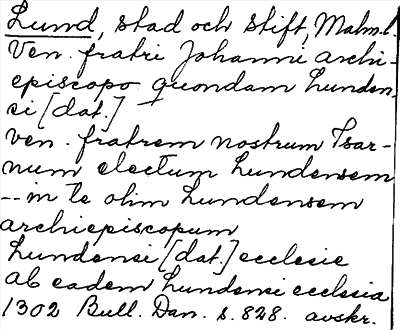 Lund, stad och stift, Malm.l.
Ven. fratri Johanni archi-
episcopo quondam Lunden-
si [dat.]
ven. fratrem nostrum Isar-
num electum Lundensem
-- in te olim Lundensem
archiepiscopum
Lundensi [dat.] ecclesie
ab eadem Lundensi ecclesia
1302 Bull. Dan. s. 828. avskr.